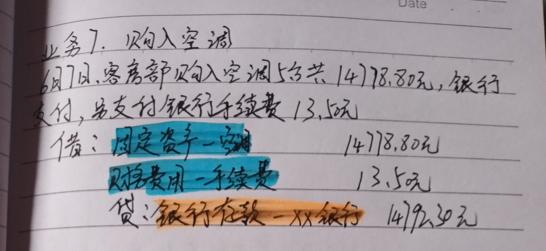 Date
业务7. 购入空调
6月7日,客房部购入空调5台共14778.80元,银行
支付,另支付银行手续费13.50元
借:固定资产—空调 14778.80元
财务费用—手续费 13.50元
贷:银行存款—XX银行 14792.30元